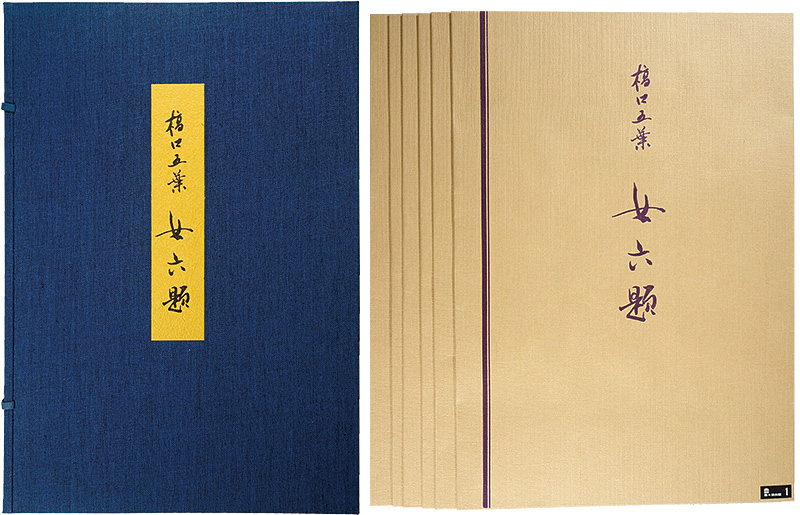 橋口五葉 女六題
橋口五葉 女六題
1